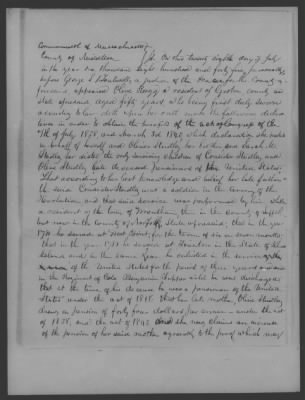 Commonwealth of Massachusetts
County of Middlesex } SS. On this twenty eighth day of July
in the year one thousand eight hundred and forty five personally
before George S Boutwell a justice of the Peace for the County a-
foresaid appeared Olive Bragg a resident of Groton county and
State aforesaid, aged fifty years, who being first duly sworn
according to law doth upon her oath make the following declara
tion in order to obtain the benefits of the act of Congress of the
7th of July 1838 and March 3d 1843 which declaration she makes
in behalf of herself and Oliver Studley her brother and Sarah M.
Studley her sister the only surviving children of Consider Studley and
Olive Studley late deceased pensioners of the United States.
That according to her best knowledge and belief her late father
the said Consider Studley was a soldier in the army of the
Revolution and that said service was performed by him while
a resident of the town of then in the County of Suffolk
but now in the County of Norfolk, State aforesaid; that in the year
he served at for the term of six months
that in the year he served at in the State of Rhode
Island and in the same year he enlisted in the service of the
army of the United States for the period of three years
in the Regiment of Col. Benjamin Tupper untill he was discharged
that at the time of his decease he was a pensioner of the United
States under the act of 1818. that her late mother, Olive Studley
drew a pension of forty four dollars per annum under the act
of 1838, and the act of 1843 and she now claims an increase
of the pension of her said mother agreeably to the proof which may